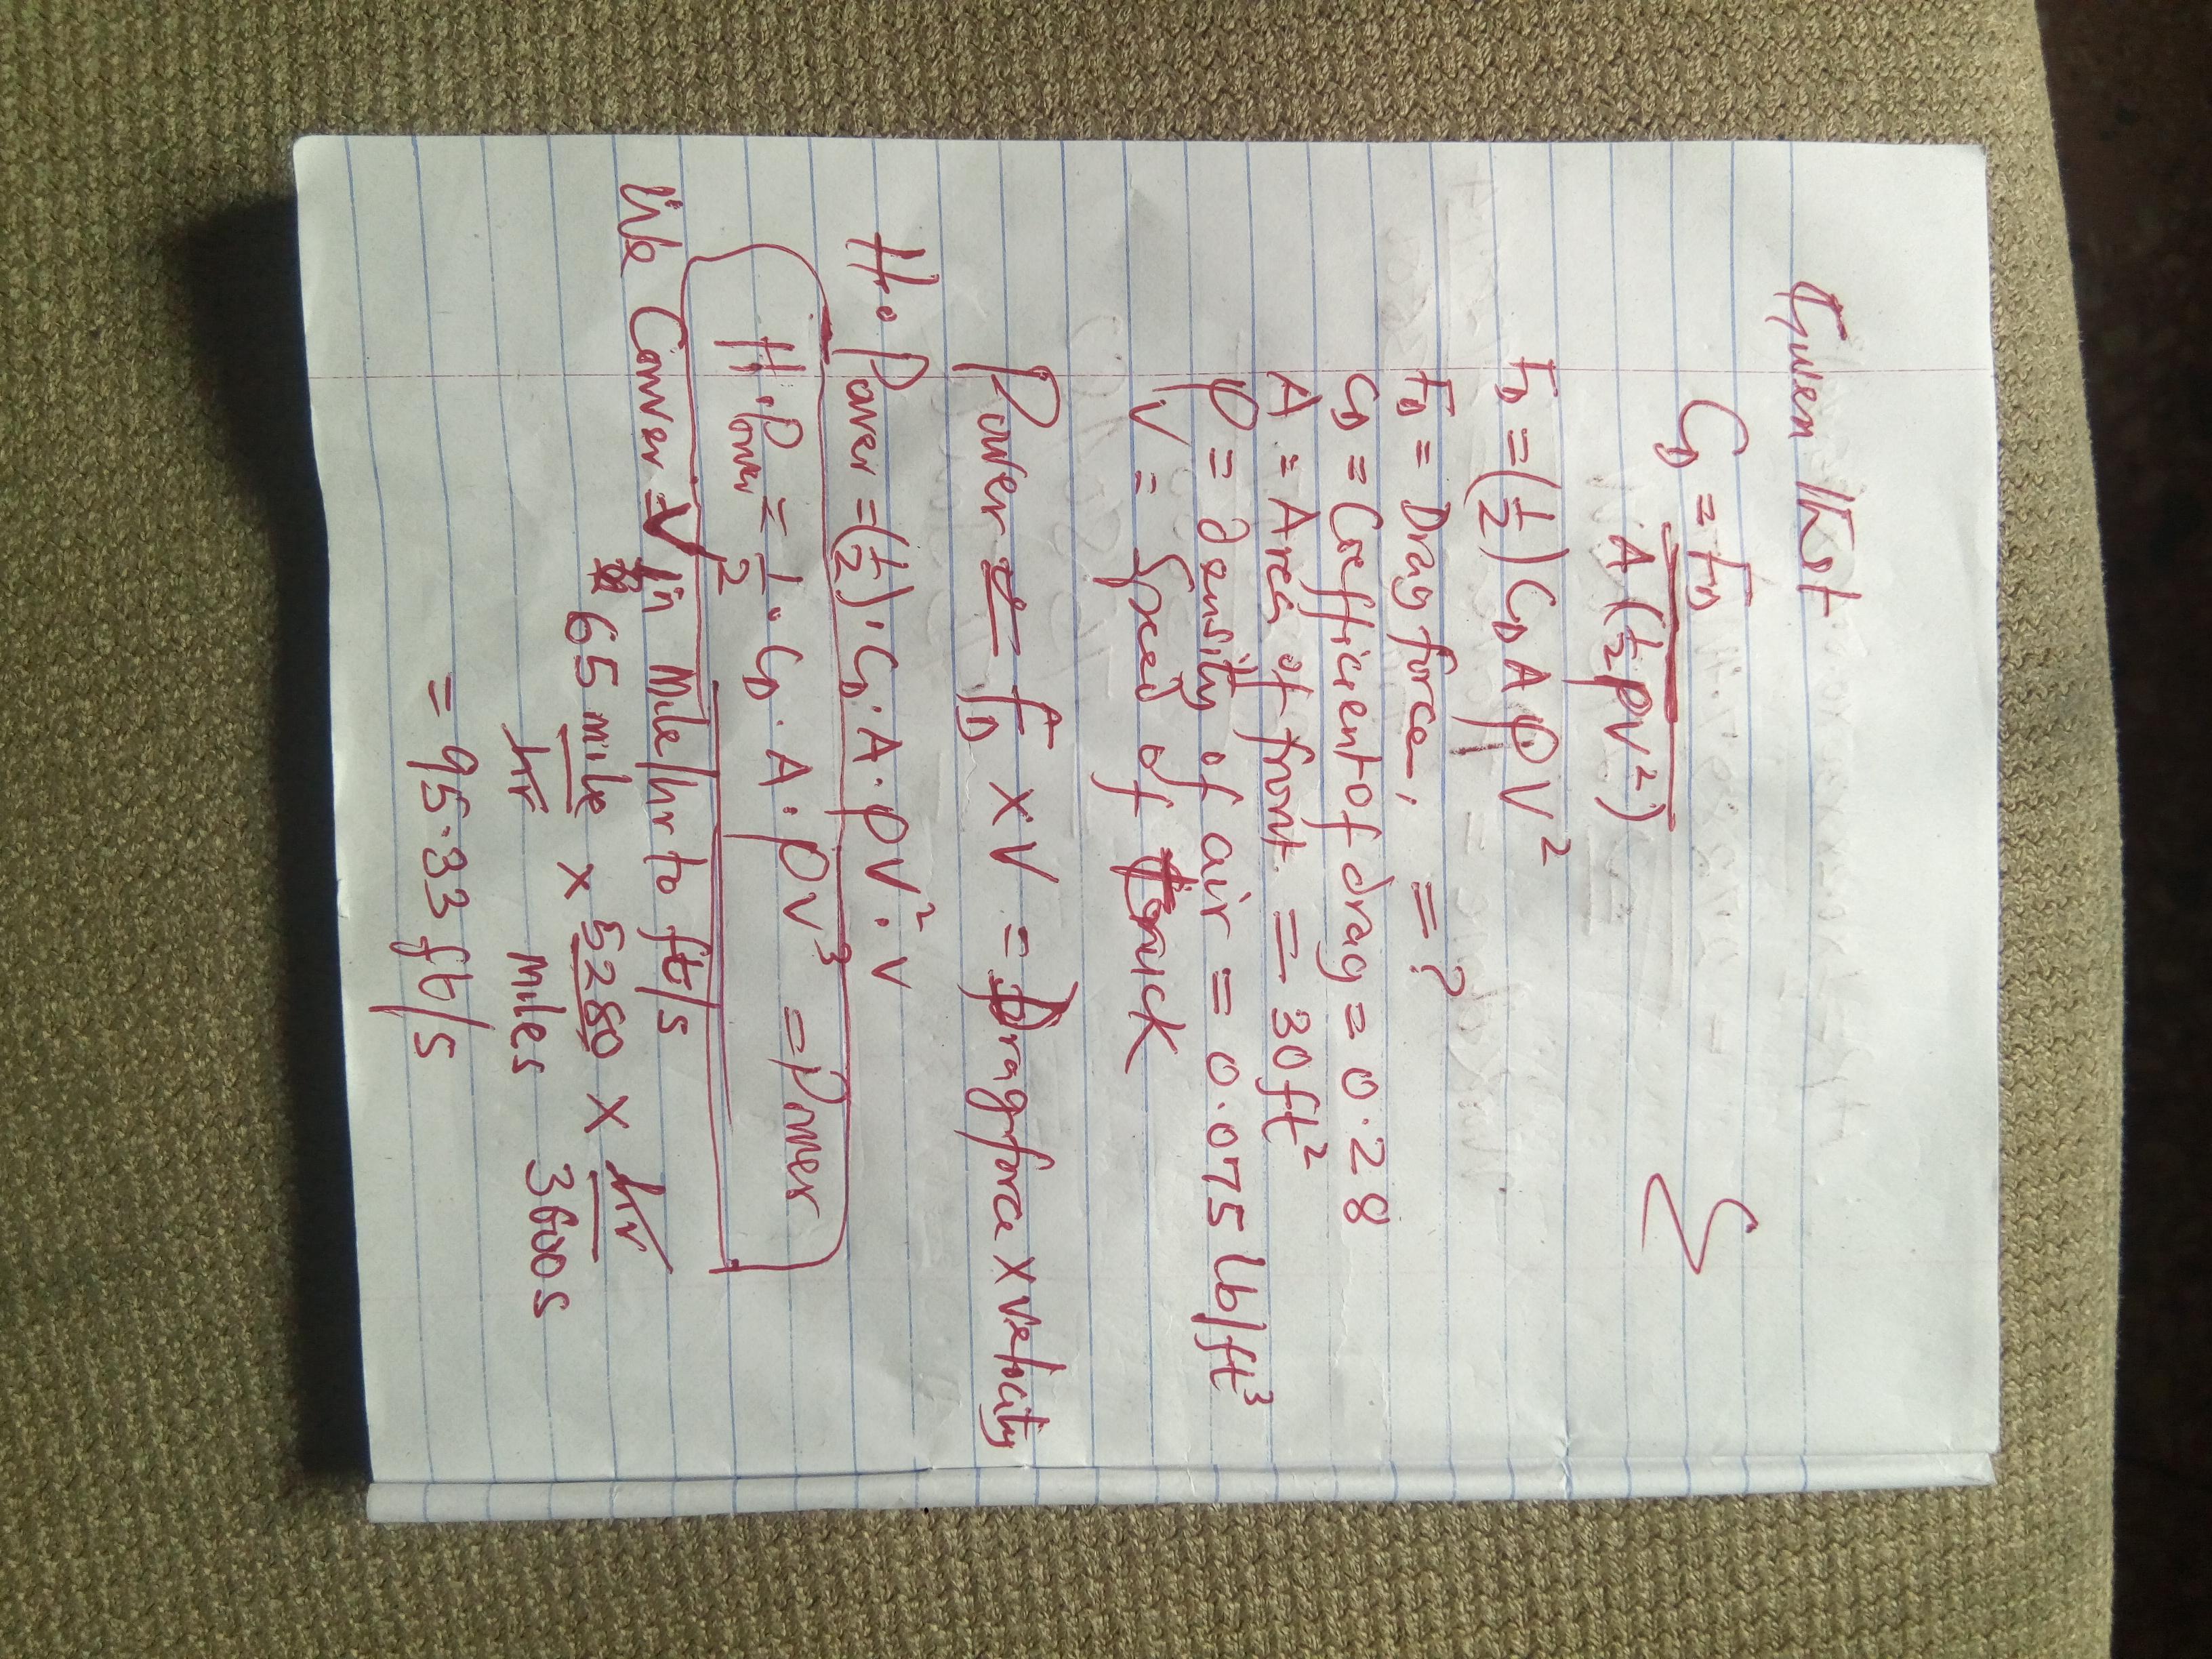 Given that
C_D = F_D / A(½ρV²)
F_D = (½) C_D A ρ V²
F_D = Drag force, = ?
C_D = Coefficient of drag = 0.28
A = Area of front. = 30ft²
ρ = density of air = 0.075 lb/ft³
V = Speed of truck
Power = f_D × V = Drag force × velocity
H. Power = (½). C_D. A. ρV². V
H. Power = 1/2 . C_D. A. ρV³ = Power
We Conver = V in Mile/hr to ft/s
65 mile/hr × 5280/miles × hr/3600s
= 95.33 ft/s